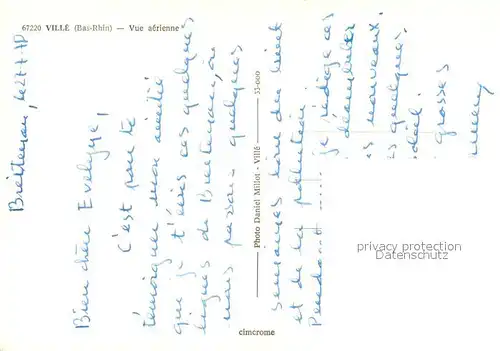 67220 VILLÉ (Bas-Rhin) — Vue aérienne
Breitenau, le
Bien chère Evelyne,
C'est pour te
témoigner mon amitié
que je t'écris ces quelques
lignes de Breitenau, où
nous passons quelques
semaines loin du bruit
et de la pollution.
Pendant ..... je rédige ces
nouveaux
quelques
grosses
Photo Daniel Millot - Villé
33-000
cimcrome
privacy protection
www.delcampe.net